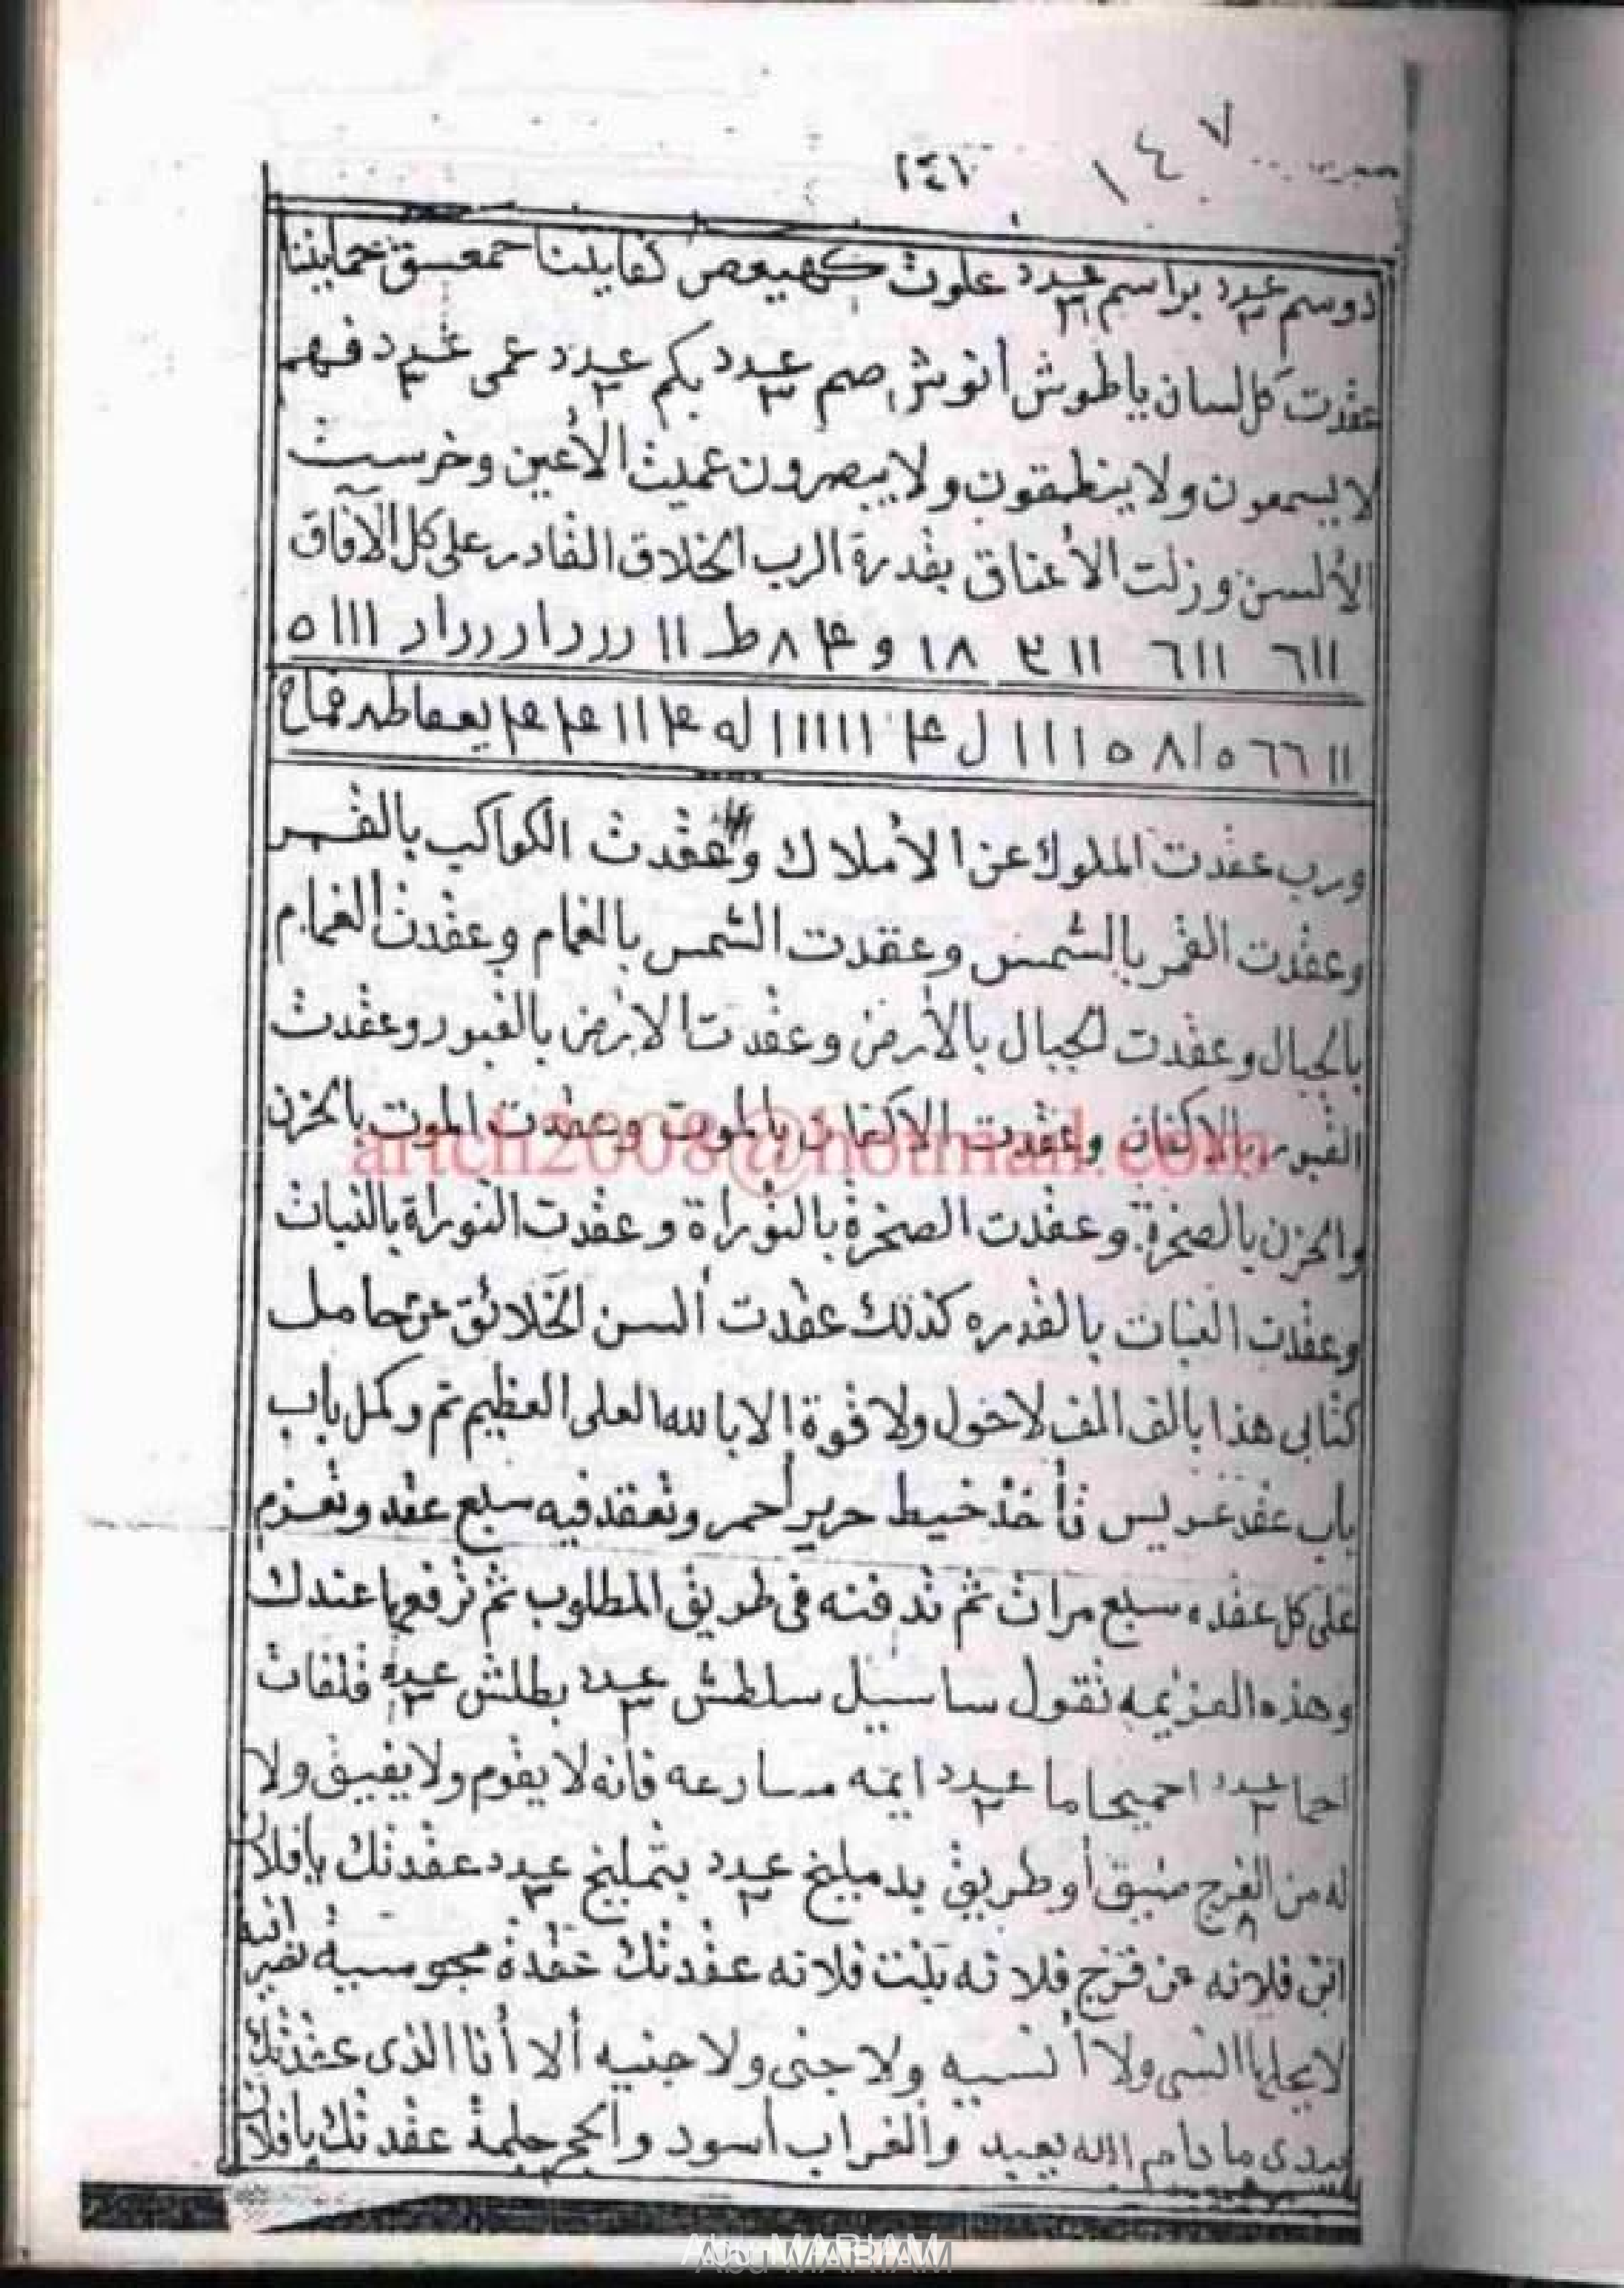 ١٤٧
١٤٧
دوسم عدد ٣ براسم عدد ٣ علوت كهيعص كفايتنا حمعسق حمايتنا
عقدت كل لسان ياطوش أنوش صم عدد ٣ بكم عدد ٣ عمى عدد ٣ فهم
لا يسمعون ولا ينطقون ولا يبصرون عميت الأعين وخرست
الألسن وزلت الأعناق بقدرة الرب الخلاق القادر على كل الآفاق
ورب عقدت الملوك عن الأملاك وعقدت الكواكب بالقمر
وعقدت القمر بالشمس وعقدت الشمس بالغمام وعقدت الغمام
بالجبال وعقدت الجبال بالأرض وعقدت الارض بالقبور وعقدت
القبور بالاكفان وعقدت الاكفان بالموت وعقدت الموت بالحزن
والحزن بالصخرة وعقدت الصخرة بالتوراة وعقدت التوراة بالنبات
وعقدت النبات بالقدره كذلك عقدت ألسن الخلائق عن حامل
كتابى هذا بالف الف لاحول ولا قوة الا بالله العلى العظيم تم وكمل باب
باب عقد عريس تأخذ خيط حرير أحمر وتعقد فيه سبع عقد وتعزم
على كل عقده سبع مرات ثم تدفنه فى طريق المطلوب ثم ترفعها عندك
وهذه العزيمه تقول ساسيل سلطش عدد ٣ بطلش عدد ٣
احما عدد ٢ احميحاما عدد ٢ ايمه مسارعه فانه لا يقوم ولا يفيق ولا
له من الفرج ضيق أو طريق يدمليخ عدد ٢ بتمليخ عدد ٣ عقدتك يافلان
ابن فلانه عن فرج فلانه بنت فلانه عقدتك عقدة مجوسية نصرانيه
لا يحلها انسى ولا أنسيه ولا جنى ولا جنيه ألا أنا الذى عقدتك
بيدى مادام الله يعيد والغراب أسود والحجر جلمد عقدتك يافلان
artch2008@hotmail.com
Abu MARIAM